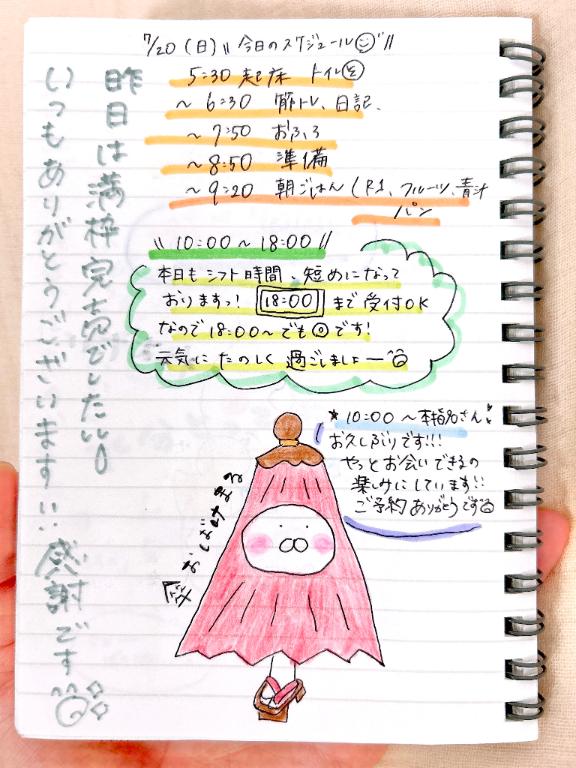 7/20(日) \\ 今日のスケジュール //
5:30 起床 トイレ
~ 6:30 筋トレ、日記、
~ 7:50 おふろ
~ 8:50 準備
~ 9:20 朝ごはん (R1、フルーツ、青汁
パン
\\ 10:00~18:00 //
本日も シフト時間、短めになって
おりますっ! 18:00 まで 受付OK
なので 18:00~ でも◎です!
元気に たのしく 過ごしましょー
★ 10:00 ~本指名さん!
お久しぶりです!!!
やっと お会いできるの
楽しみにしています!!
ご予約 ありがとうです
おしばけまる
昨日は満枠完売でした!!
いつもありがとうございます!! 感謝です